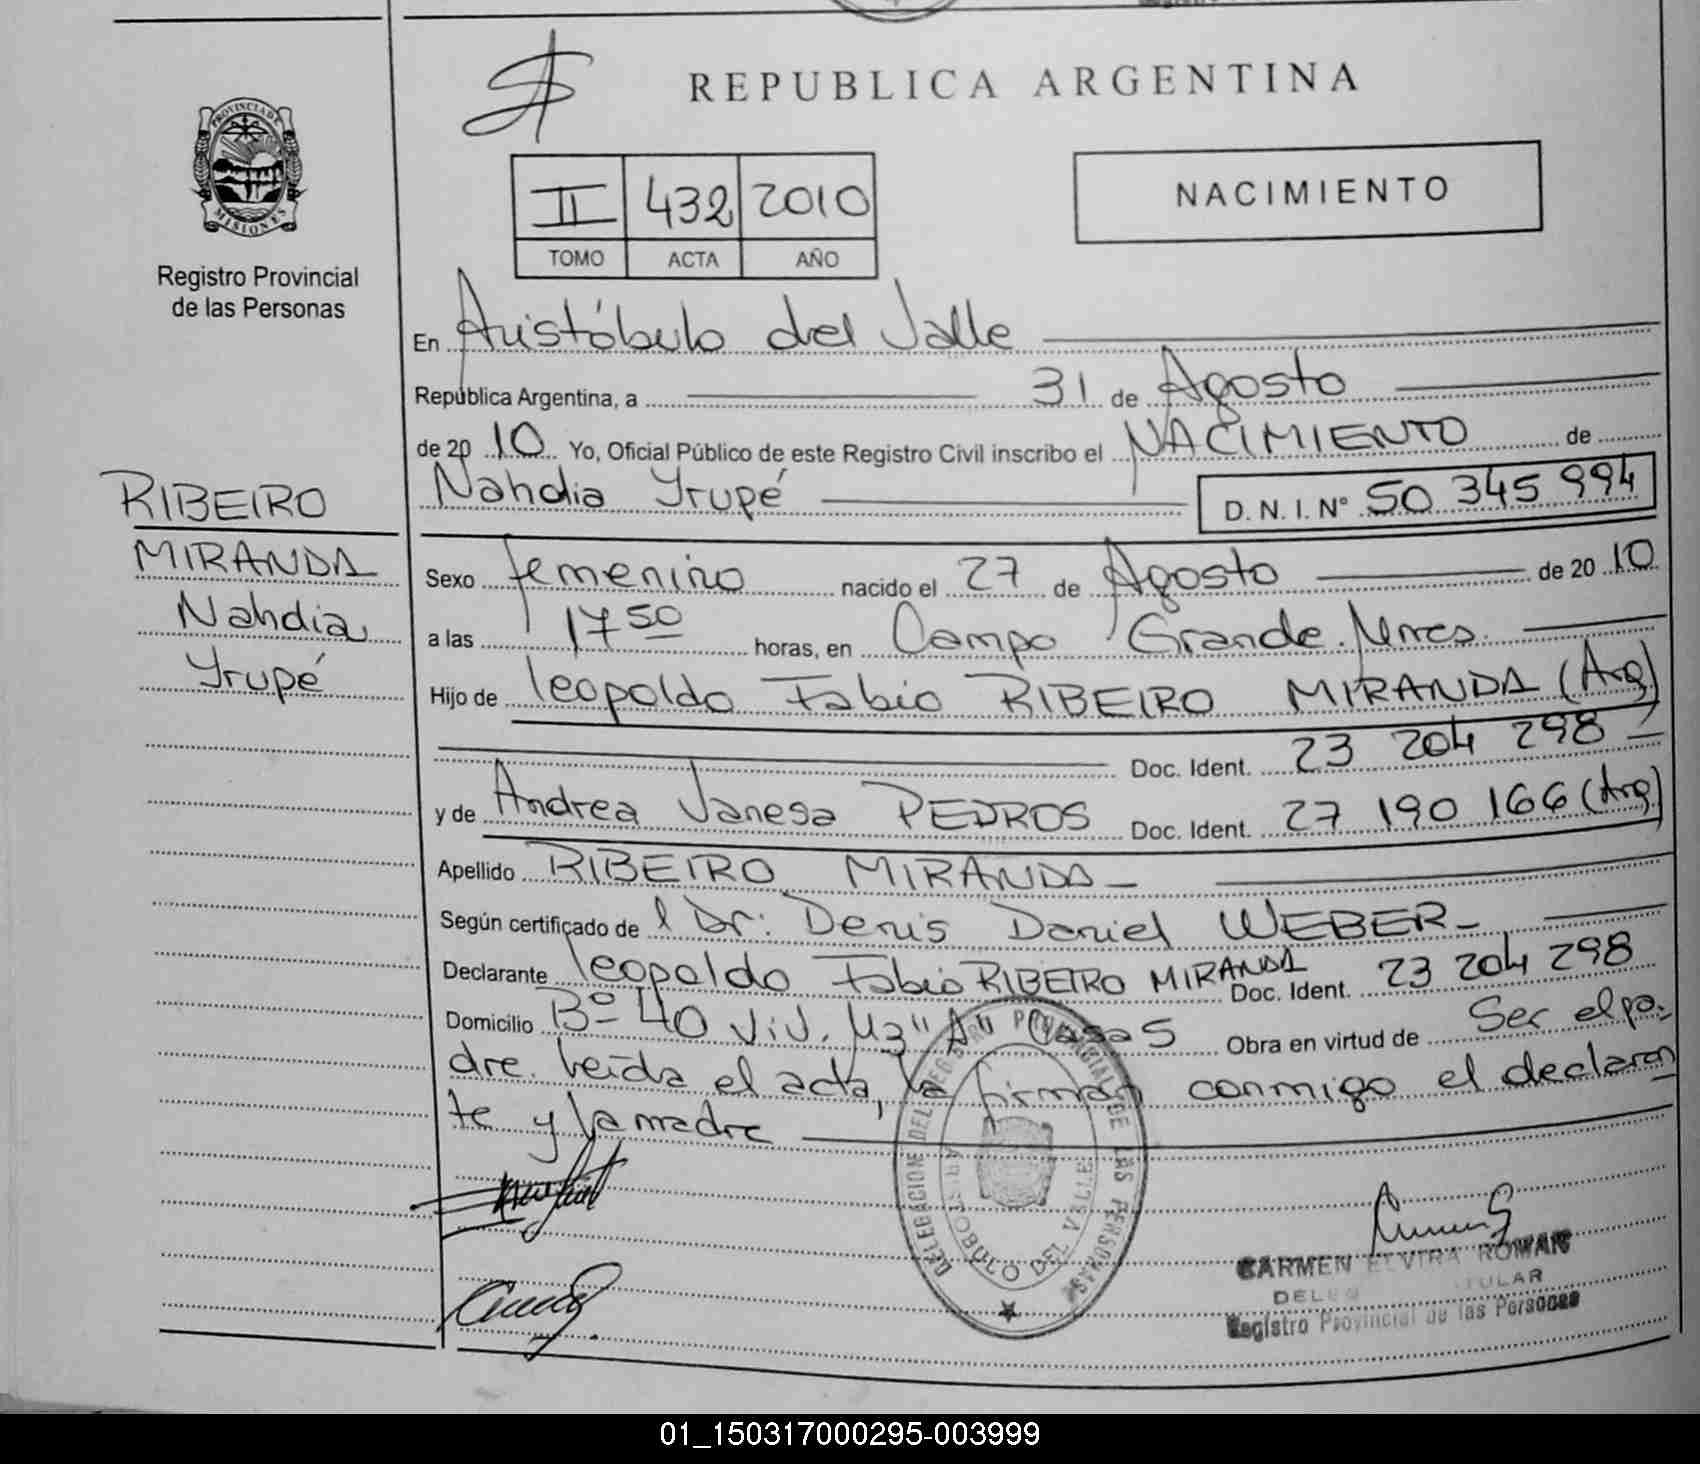 REPUBLICA ARGENTINA
PROVINCIA DE
MISIONES
Registro Provincial
de las Personas
II 432 2010
TOMO ACTA AÑO
NACIMIENTO
En Aristóbulo del Valle
República Argentina, a 31 de Agosto
de 2010 Yo, Oficial Público de este Registro Civil inscribo el NACIMIENTO de
Nahdia Yrupé D. N. I. Nº 50 345 994
RIBEIRO
MIRANDA
Nahdia
Yrupé
Sexo femenino nacido el 27 de Agosto de 2010
a las 17 50 horas, en Campo Grande. Mnes.
Hijo de Leopoldo Fabio RIBEIRO MIRANDA (Arg)
Doc. Ident. 23 204 298
y de Andrea Vanesa PEDROS Doc. Ident. 27 190 166 (Arg)
Apellido RIBEIRO MIRANDA
Según certificado de l Dr: Denis Daniel WEBER
Declarante Leopoldo Fabio RIBEIRO MIRANDA Doc. Ident. 23 204 298
Domicilio Bº 40 Viv. Mz "A" Casa 5 Obra en virtud de Ser el pa-
dre. Leída el acta, la firman conmigo el declaran
te y la madre
DELEGACION DEL REGISTRO PROVINCIAL DE LAS PERSONAS
ARISTOBULO DEL VALLE
CARMEN ELVIRA ROMAN
TITULAR
Registro Provincial de las Personas
01_150317000295-003999